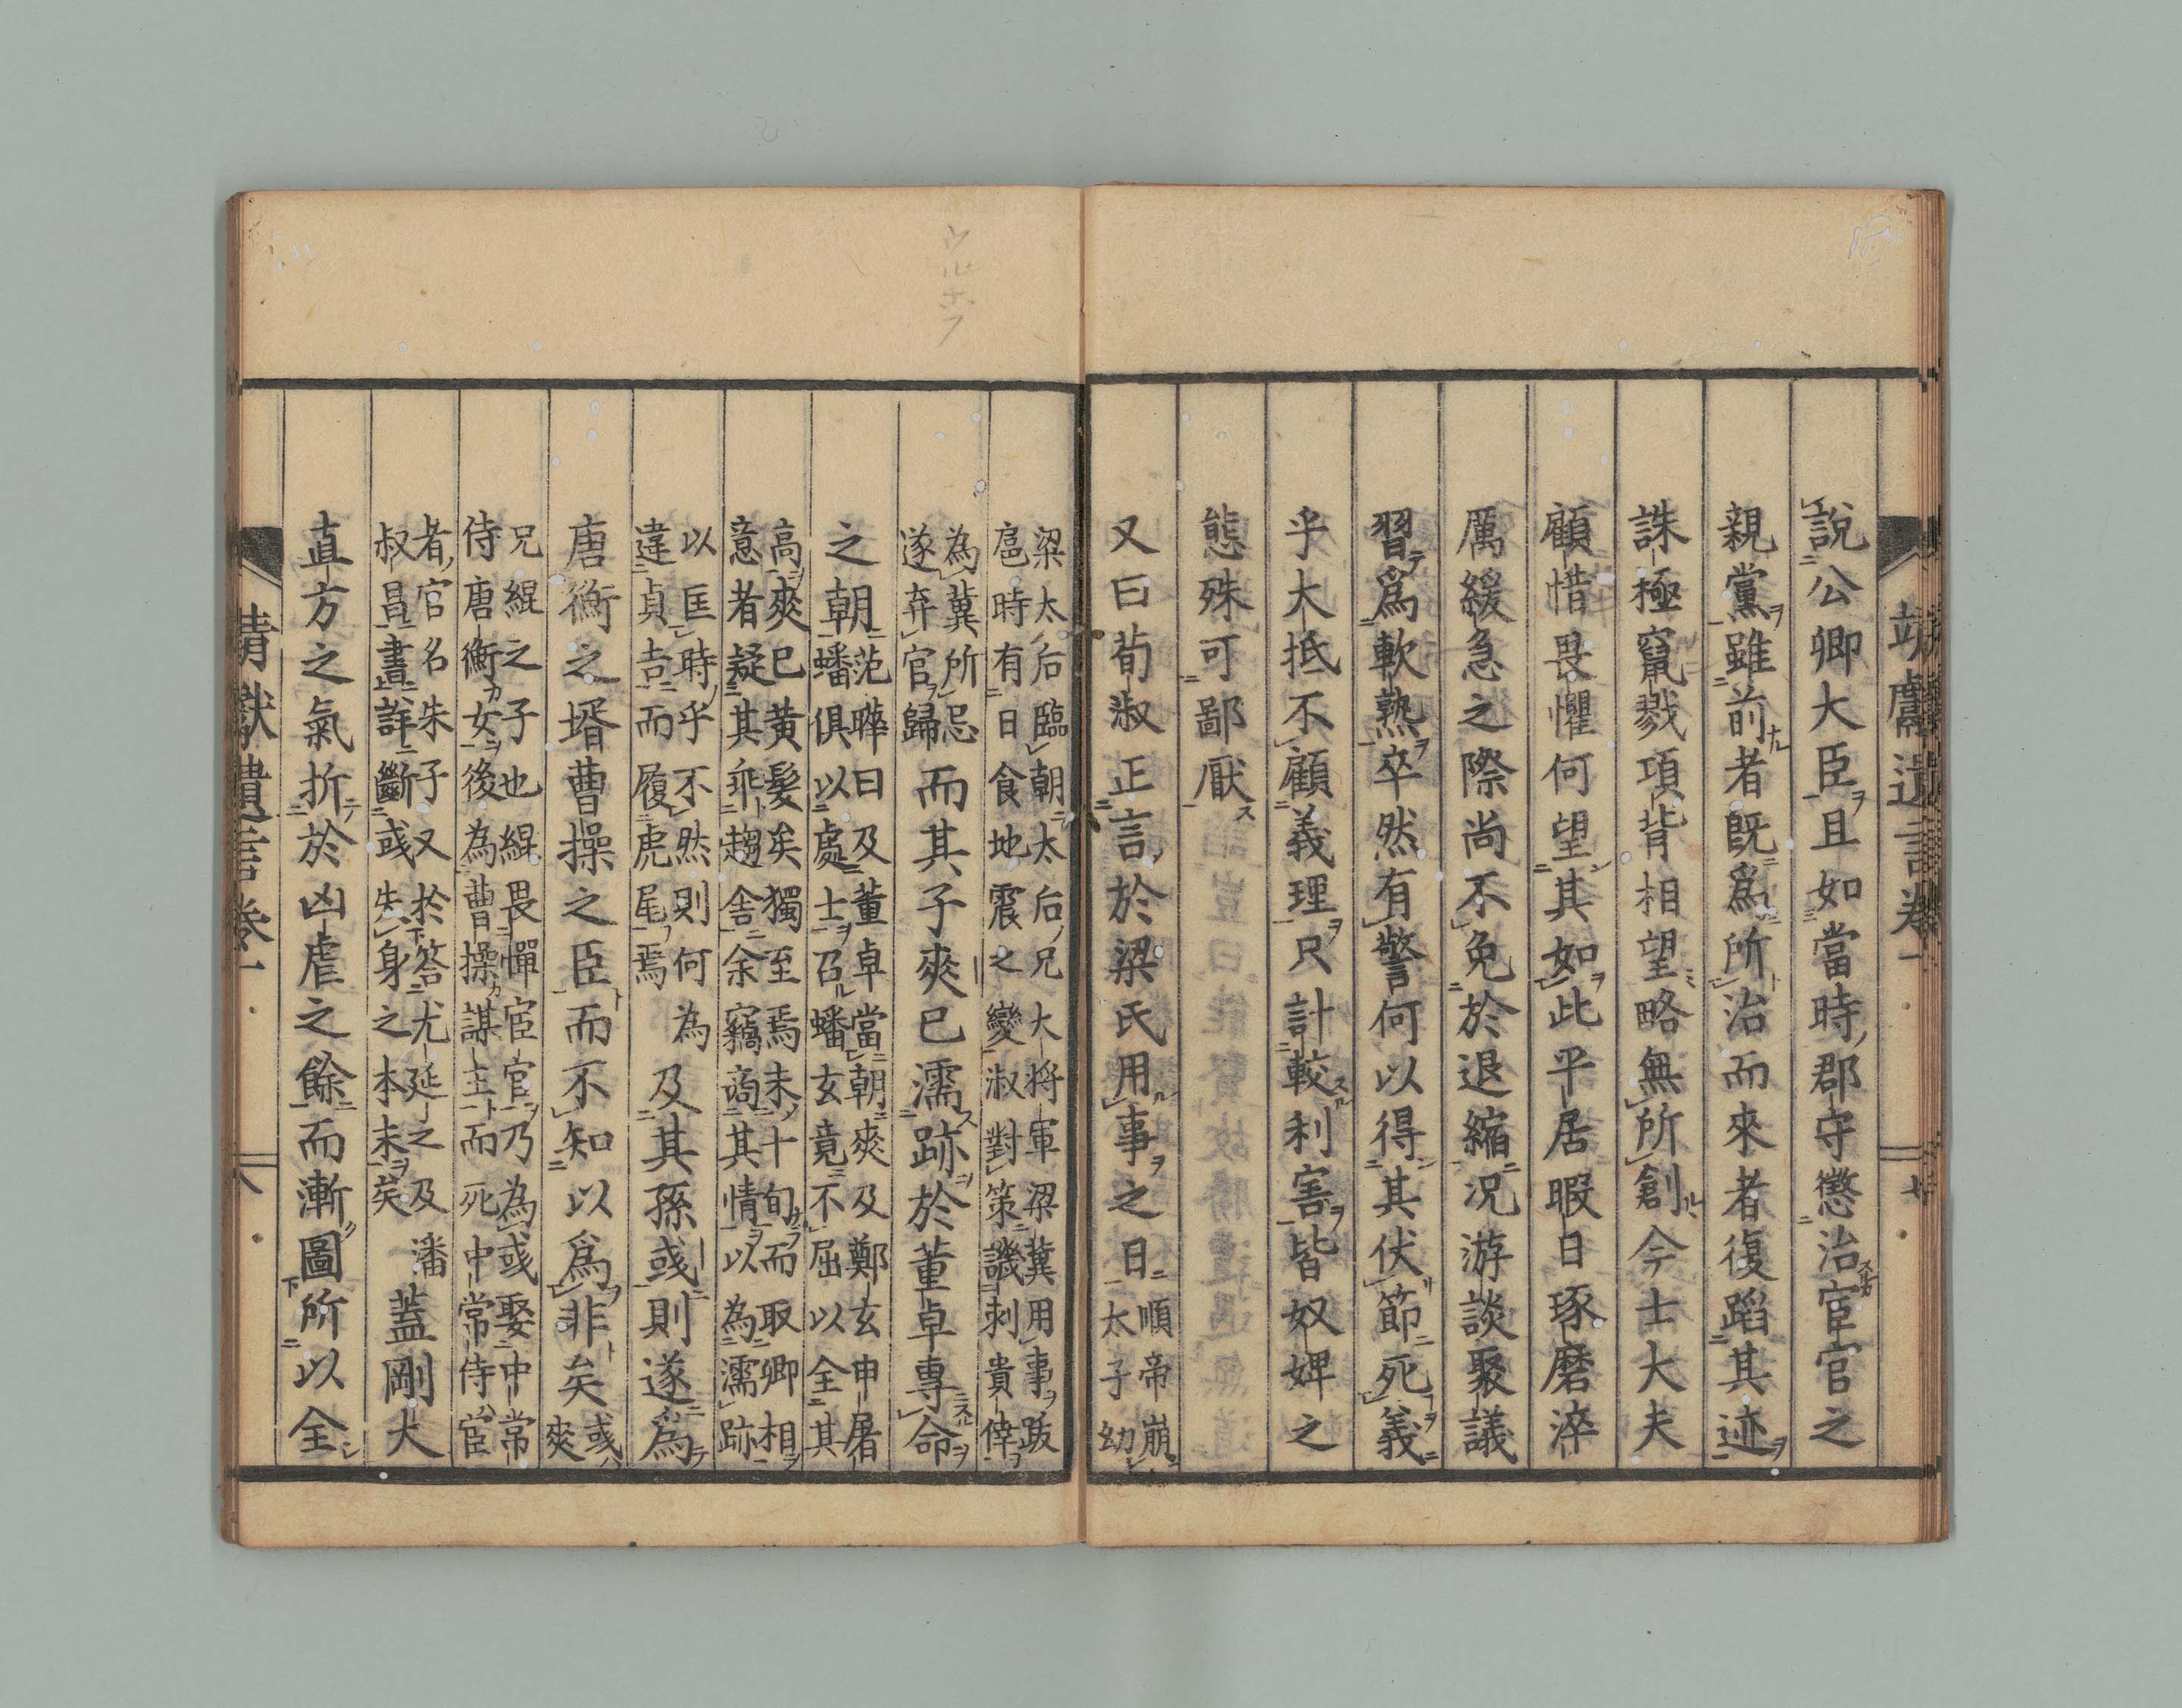 靖獻遺言卷一
七
說公卿大臣且如當時郡守懲治宦官之
親黨雖前者既爲所治而來者復蹈其迹
誅極竄戮項背相望略無所創今士大夫
顧惜畏懼何望其如此平居暇日琢磨淬
厲緩急之際尚不免於退縮况游談聚議
習爲軟熟卒然有警何以得其伏節死義
乎大抵不顧義理只計較利害皆奴婢之
態殊可鄙厭
又曰荀淑正言於梁氏用事之日順帝崩
太子幼
梁太后臨朝太后兄大將軍梁冀用事跋
扈時有日食地震之變淑對策譏刺貴倖
為冀所忌
遂弃官歸而其子爽已濡跡於董卓專命
之朝范曄曰及董卓當朝爽及鄭玄申屠
蟠俱以處士召蟠玄竟不屈以全其
高爽已黄髮矣獨至焉未十旬而取卿相
意者疑其乖趨舍余竊商其情以為濡跡
以匡時乎不然則何為
違貞吉而履虎尾焉及其孫彧則遂為
唐衡之壻曹操之臣而不知以爲非矣彧
爽
兄緄之子也緄畏憚宦官乃為彧娶中常
侍唐衡女後為曹操謀主而死中常侍宦
者官名朱子又於答尤延之及潘
叔昌書詳斷彧失身之本末矣蓋剛大
直方之氣折於凶虐之餘而漸圖所以全
靖獻遺言卷一
八